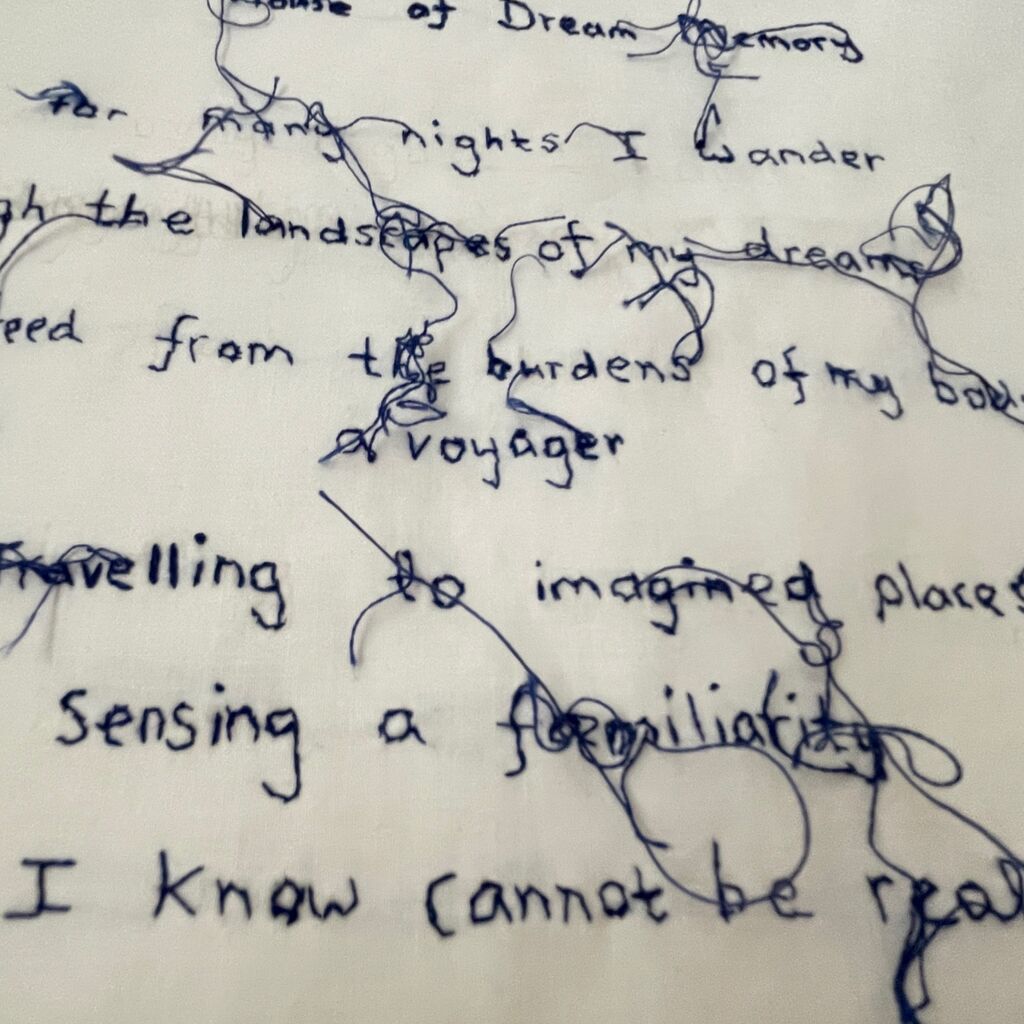 House of Dream Memory
for many nights I wander
gh the landscapes of my dreams
reed from the burdens of my bod
a voyager
Travelling to imagined places
sensing a familiarity
I know cannot be real